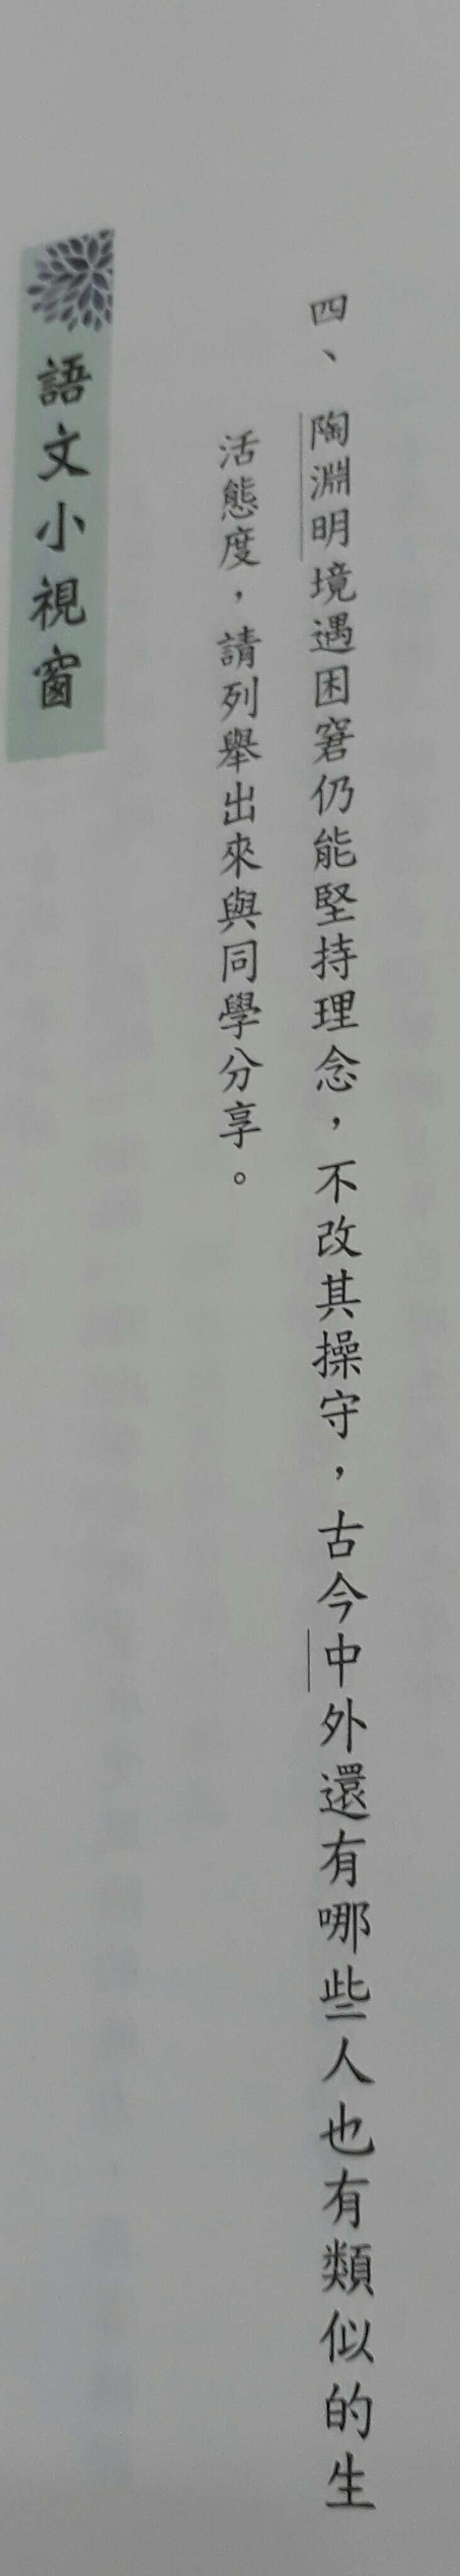 四、陶淵明境遇困窘仍能堅持理念，不改其操守，古今中外還有哪些人也有類似的生
活態度，請列舉出來與同學分享。
語文小視窗